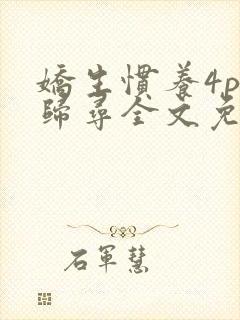 嬌生慣養4p
歸尋全文免
石軍慧